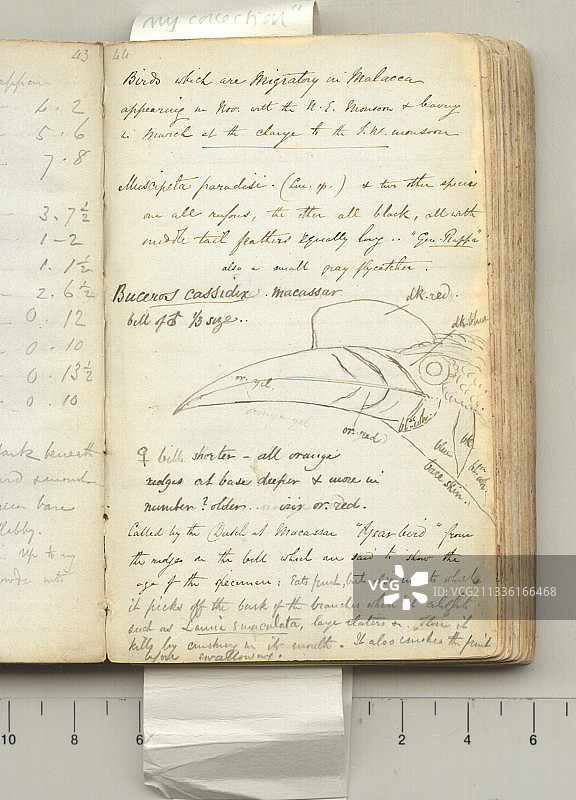 "my collection"
43
appear
4.2
5.6
7.8
3.7½
1-2
1.1½
2.6½
0.12
0.10
0.13½
0.10
beneath
bare
Up to my
44
Birds which are Migratory in Malacca
appearing in Nov. with the N.E. Monsoon & leaving
in March at the change to the S.W. monsoon
Muscipeta paradisi. (Lin. sp.) & two other species
one all rufous, the other all black, all with
middle tail feathers equally long..
also a small gray flycatcher.
Buceros cassidix. Macassar
bill of ♂ ⅓ size..
dk. red.
dk. blue
or. yel.
orange yel
or. red
blue
bk.
bare skin..
♀ bill shorter - all orange
ridges at base deeper & more in
number? older.. iris or. red.
Called by the Dutch at Macassar "Year bird" from
the ridges on the bell which are said to show the
age of the specimen: Eats fruit, but
it picks off the bark of the branches where it alights,
such as Lamia 8 maculata, large elaters &. These it
kills by crushing in its mouth. It also crushes the fruit
before swallowing.
VCG
ID:VCG211336166468
10
8
6
2
4
6